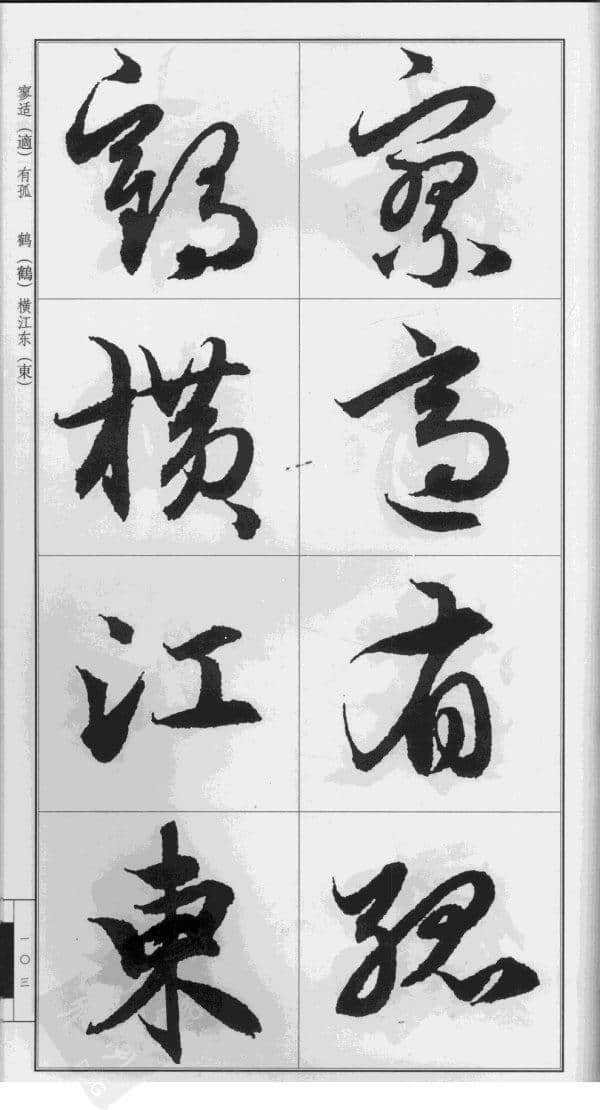 寥適有孤
鶴橫江東
寥适（適）有孤　鹤（鶴）横江东（東）
一〇三